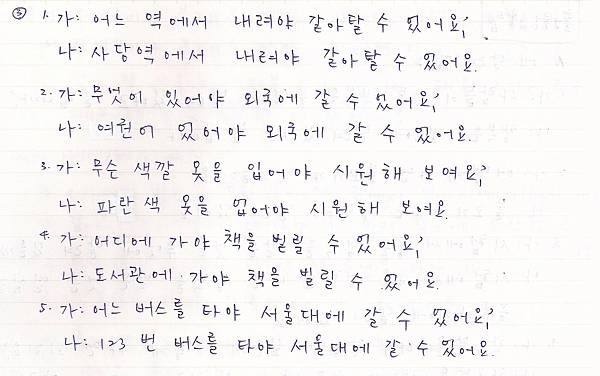 ③ 1. 가: 어느 역에서 내려야 갈아탈 수 있어요?
나: 사당역에서 내려야 갈아탈 수 있어요.
2. 가: 무엇이 있어야 외국에 갈 수 있어요?
나: 여권이 있어야 외국에 갈 수 있어요.
3. 가: 무슨 색깔 옷을 입어야 시원해 보여요?
나: 파란색 옷을 입어야 시원해 보여요.
4. 가: 어디에 가야 책을 빌릴 수 있어요?
나: 도서관에 가야 책을 빌릴 수 있어요.
5. 가: 어느 버스를 타야 서울대에 갈 수 있어요?
나: 123 번 버스를 타야 서울대에 갈 수 있어요.